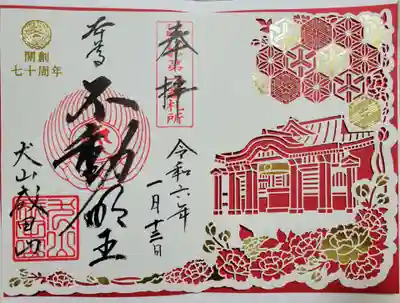 奉拝
本尊
不動明王
犬山成田山
令和六年
一月十三日
開創
七十周年
札所